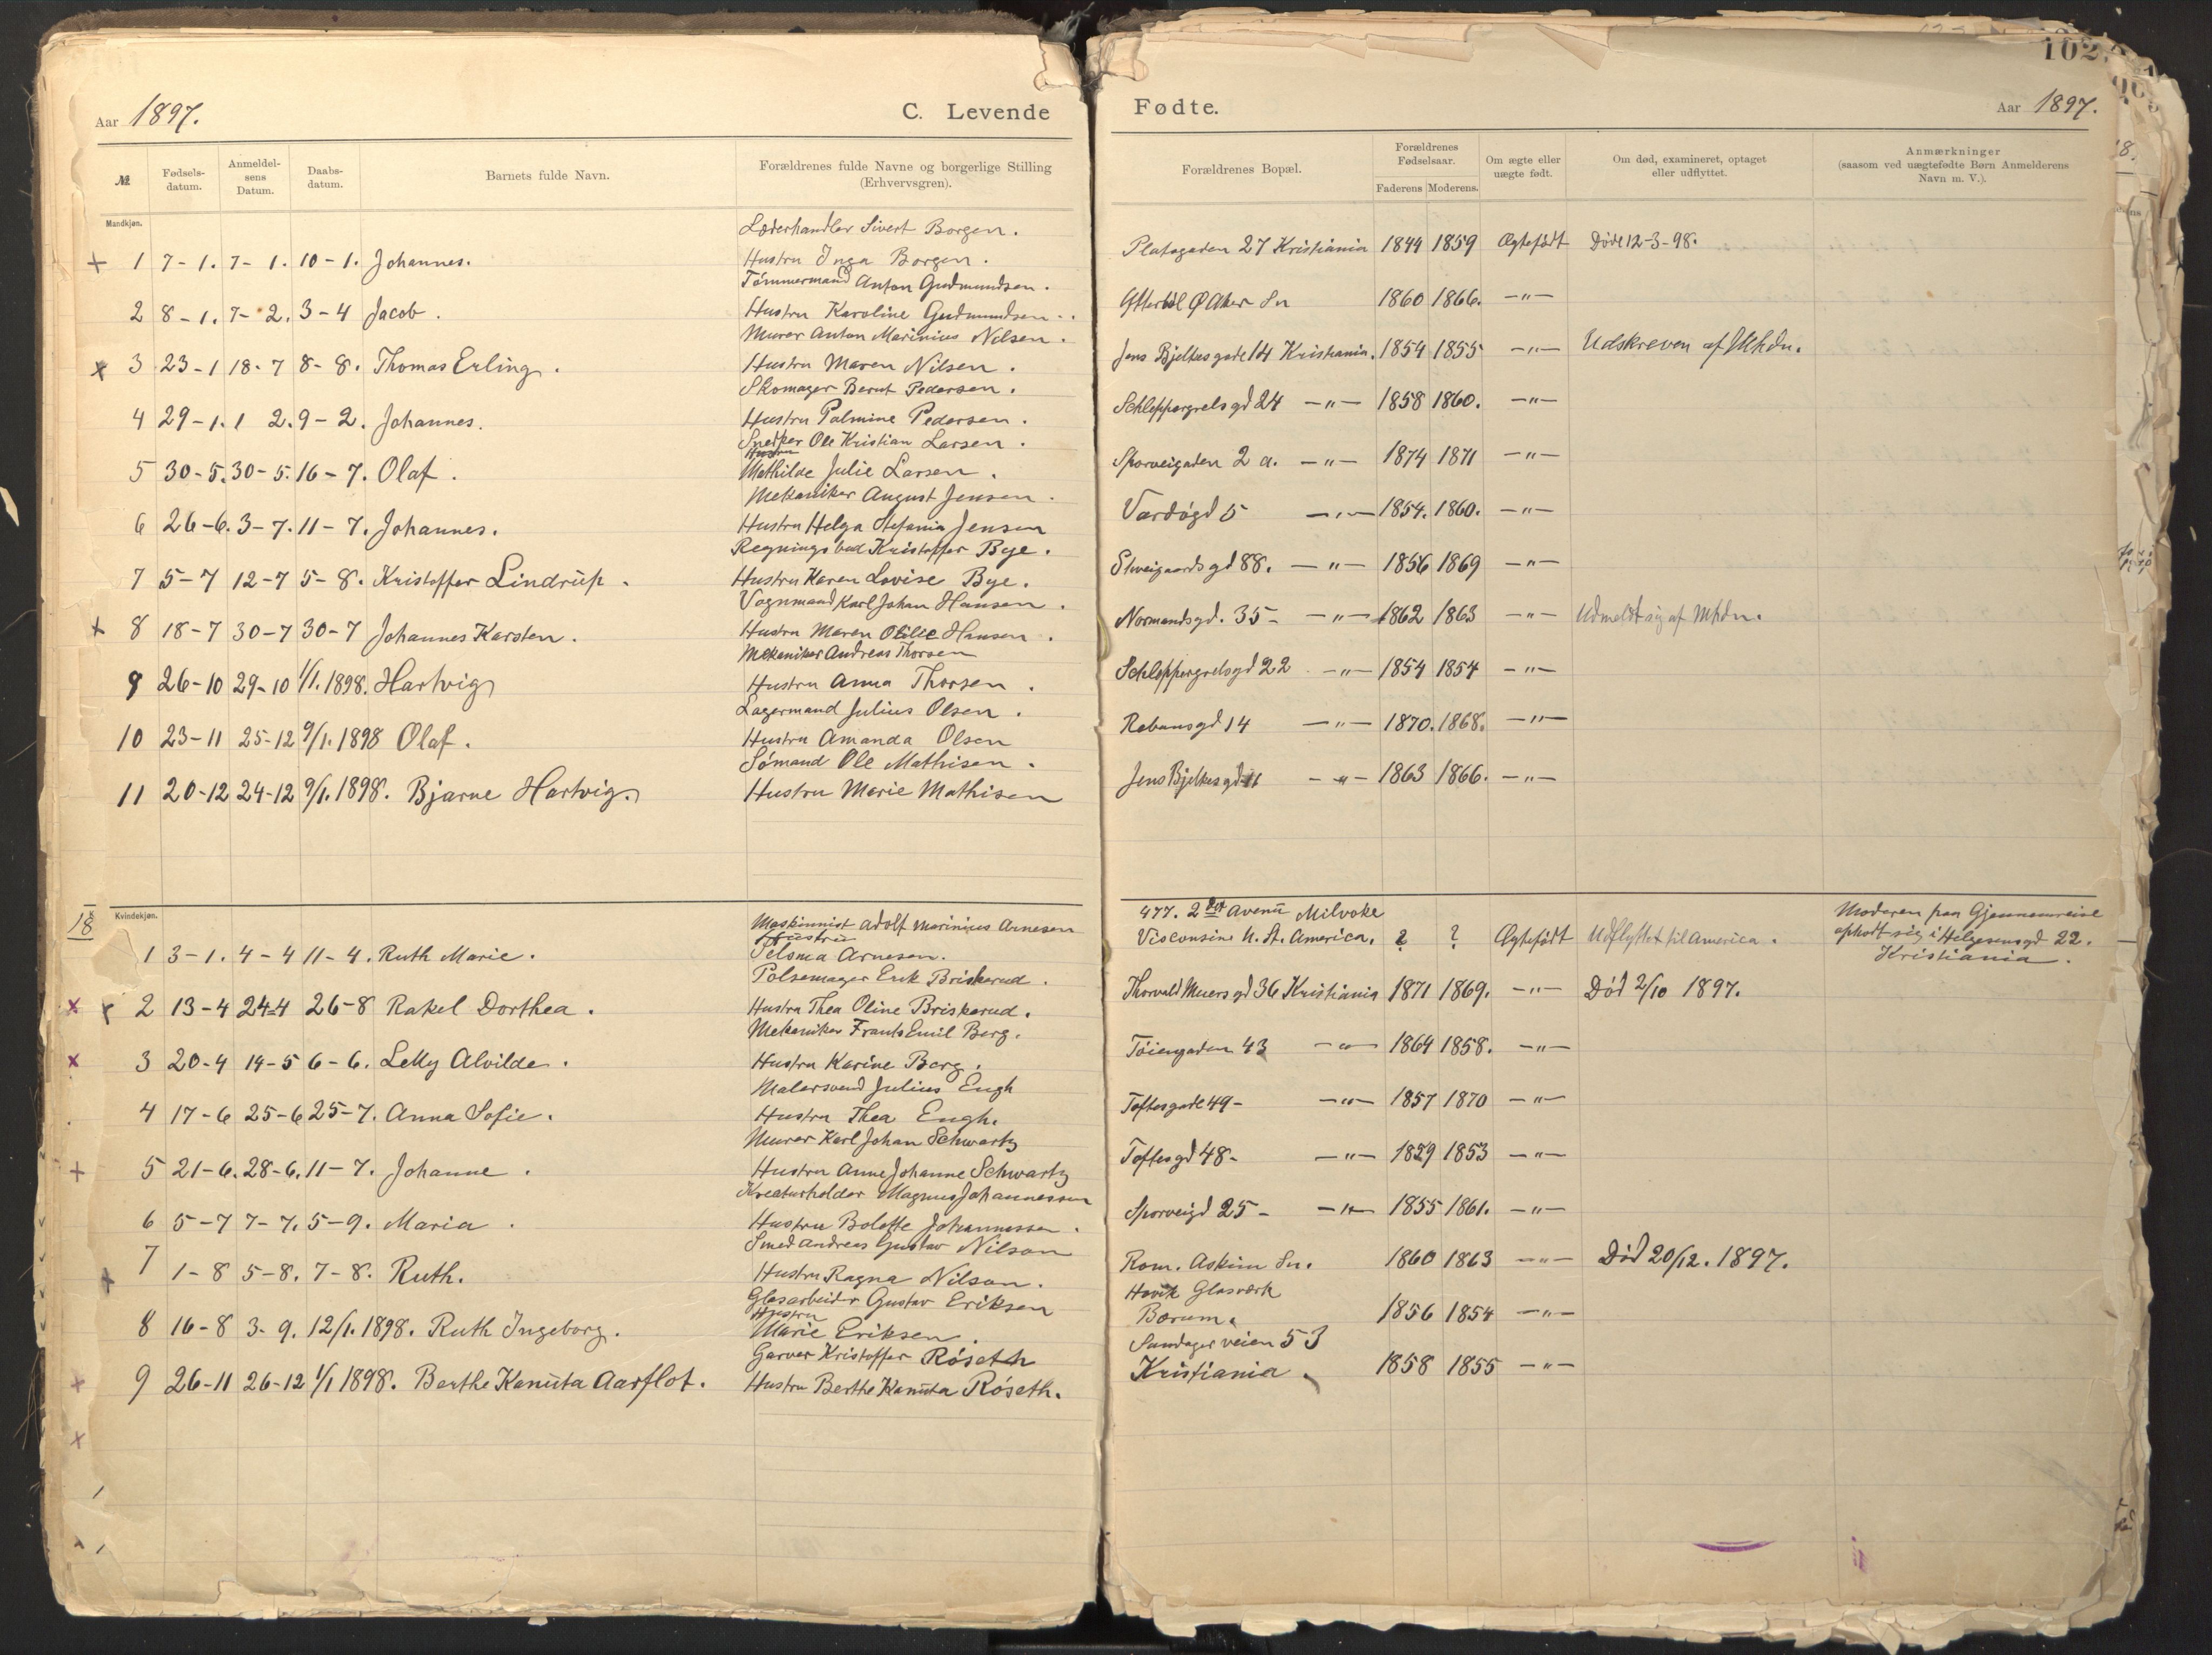 102.
Aar 1897.
C. Levende Fødte.
Aar 1897.
№ Fødsels-datum. Anmeldel-sens Datum. Daabs-datum. Barnets fulde Navn. Forældrenes fulde Navne og borgerlige Stilling (Erhvervsgren). Forældrenes Bopæl. Forældrenes Fødselsaar. Faderens Moderens. Om ægte eller uægte født. Om død, examineret, optaget eller udflyttet. Anmærkninger (saasom ved uægtefødte Børn Anmelderens Navn m. V.).
Mandkjøn.
Læderhandler Sivert Borgen.
+ 1 7-1. 7-1. 10-1. Johannes. Hustru Inga Borgen. Platagaden 27 Kristiania 1844 1859 Ægtefødt Døde 12-3-98.
Tömmermand Anton Gudmundsen.
2 8-1. 7-2. 3-4 Jacob. Hustru Karoline Gudmundsen. Ø Aker Sn 1860 1866. -"-
Murer Anton Marinius Nilsen.
x 3 23-1 18-7 8-8. Thomas Erling. Hustru Maren Nilsen. Jens Bjelkesgade 14 Kristiania. 1854 1855 -"- Udskreven af Mhdn.
Skomager Bernt Pedersen.
4 29-1. 1 2. 9-2. Johannes. Hustru Palmine Pedersen. Schleppegrelsgd 24 -"- 1858 1860. -"-
Snedker Ole Kristian Larsen.
Hustru
5 30-5. 30-5. 16-7. Olaf. Mathilde Julie Larsen. Sporveigaden 2 a. -"- 1874 1871 -"-
Mekaniker August Jensen.
6 26-6. 3-7. 11-7. Johannes. Hustru Helga Stefania Jensen Vardögd 5 -"- 1854. 1860. -"-
Regningsbud Kristoffer Bye.
7 5-7 12-7 5-8. Kristoffer Lindrup. Hustru Karen Lovise Bye. Schweigaardsgd 88. -"- 1856 1869 -"-
Vognmand Karl Johan Hansen.
+ 8 18-7 30-7 30-7 Johannes Karsten. Hustru Maren Olille Hansen. Normandsgd. 35- -"- 1862 1863 -"- Udmeldt sig af Mhdn.
Mekaniker Andreas Thorsen
9 26-10 29-10 1/1. 1898. Hartvig Hustru Anna Thorsen. Schleppegrelsgd 22 -"- 1854 1854 -"-
Lagermand Julius Olsen.
10 23-11 25-12 9/1. 1898 Olaf. Hustru Amanda Olsen Rebansgd 14 -"- 1870. 1868. -"-
Sömand Ole Mathisen.
11 20-12 24-12 9/1. 1898. Bjarne Hartvig. Hustru Marie Mathisen Jens Bjelkesgd 11 -"- 1863 1866. -"-
18 Kvindekjøn.
Maskinnist Adolf Marinius Arnesen 477. 2 Avenü Milvoke Moderen paa Gjennemreise
Hustru
1 3-1. 4-4 11-4. Ruth Marie. Peloma Arnesen. Visconsine U. St. America. ? ? Ægtefødt Udflyttet til America. opholdt sig i Helgesensgd 22. Kristiania.
Pølsemager Erik Briskerud.
x x 2 13-4 24-4 26-8 Rakel Dorthea. Hustru Thea Oline Briskerud. Thorvald Meiersgd 36 Kristiania 1871 1869. -"- Död 2/10 1897.
Mekaniker Frants Emil Berg.
x 3 20-4 14-5 6-6. Lelly Alvilde. Hustru Karine Berg. Töiengaden 43 -"- 1864 1858. -"-
Malersvend Julius Engh
4 17-6 25-6 25-7. Anna Sofie. Hustru Thea Engh. Toftesgade 49- -"- 1857 1870 -"-
Murer Karl Johan Schwartz
+ 5 21-6. 28-6. 11-7. Johanne. Hustru Anne Johanne Schwartz Toftesgd 48- -"- 1829 1853 -"-
Kreaturholder Magnus Johannessen
6 5-7 7-7. 5-9. Maria. Hustru Bolette Johannessen. Sporveigd 25- -"- 1855 1861. -"-
Smed Andreas Gustav Nilson
+ 7 1-8 5-8. 7-8. Ruth. Hustru Ragna Nilson. Rom. Askim Sn. 1860 1863 -"- Död 20/12. 1897.
Glasarbeider Gustav Eriksen Hövik Glasværk
Hustru
8 16-8 3-9. 12/1. 1898. Ruth Ingeborg. Marie Eriksen. Bærum. 1856 1854 -"-
Garver Kristoffer Röseth Sandagerveien 53
+ 9 26-11 26-12 1/1 1898. Berthe Kanuta Aarflot. Hustru Berthe Kanuta Röseth. Kristiania. 1858 1855 -"-